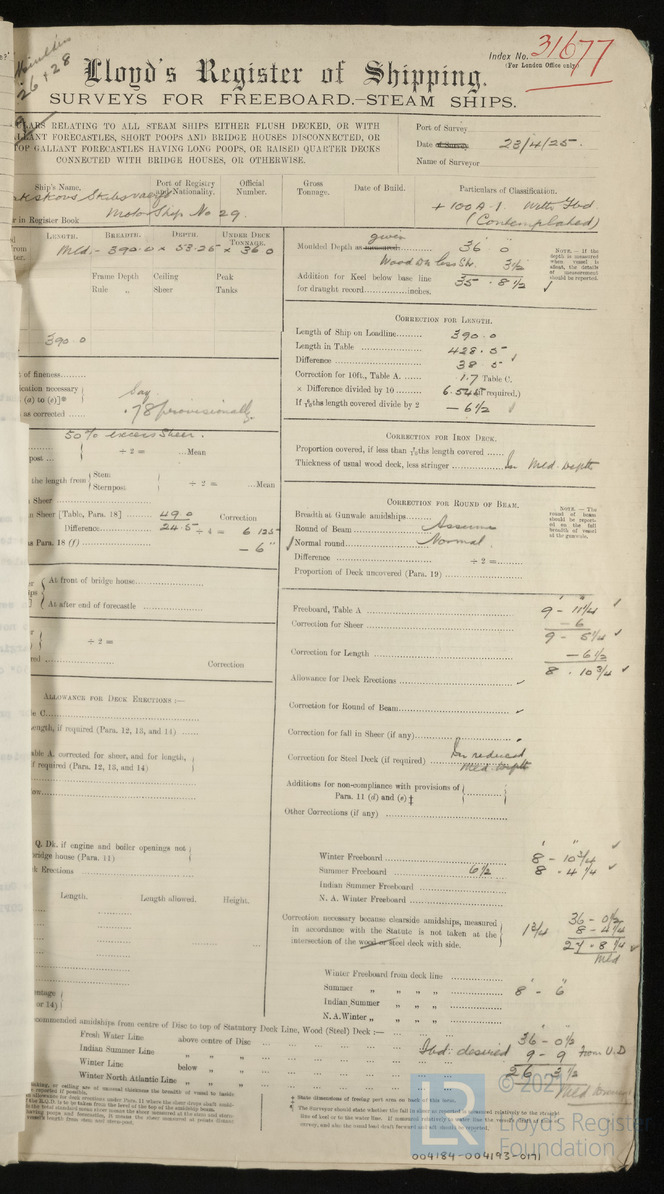 26 + 28
Index No. 31677
(For London Office only)
Lloyd's Register of Shipping.
SURVEYS FOR FREEBOARD.—STEAM SHIPS.
RELATING TO ALL STEAM SHIPS EITHER FLUSH DECKED, OR WITH
FORECASTLES, SHORT POOPS AND BRIDGE HOUSES DISCONNECTED, OR
GALLANT FORECASTLES HAVING LONG POOPS, OR RAISED QUARTER DECKS
CONNECTED WITH BRIDGE HOUSES, OR OTHERWISE.
Port of Survey
Date of Survey 23/4/25.
Name of Surveyor
Ship's Name. Port of Registry and Nationality. Official Number. Gross Tonnage. Date of Build. Particulars of Classification.
Moto Ship No 29.
in Register Book
+ 100 A.1. With Fbd
(Contemplated)
LENGTH. BREADTH. DEPTH. UNDER DECK TONNAGE.
Mld:- 390.0 x 53.25 x 36.0
Frame Depth Ceiling Peak
Rule „ Sheer Tanks
390.0
Moulded Depth as measured given 36 0
Wood Dk less Str. 3½
35 . 8½
Addition for Keel below base line
for draught record inches.
NOTE.—If the depth is measured when vessel is afloat, the details of measurement should be reported.
CORRECTION FOR LENGTH.
Length of Ship on Loadline 390.0
Length in Table 428.5
Difference 38.5
Correction for 10ft., Table A. 1.7 Table C.
× Difference divided by 10 6.545 (if required.)
If 6/10ths length covered divide by 2 – 6½
of fineness
necessary
(a) to (e)]*
as corrected
Say
.78 provisionally
50% excess Sheer.
÷ 2 = Mean
the length from Stem
Sternpost
÷ 2 = Mean
Sheer
Sheer [Table, Para. 18] 49.0 Correction
Difference 24.5 ÷ 4 = 6.125
Para. 18 (f) – 6"
CORRECTION FOR IRON DECK.
Proportion covered, if less than 6/10ths length covered
Thickness of usual wood deck, less stringer In Mld. Depth
CORRECTION FOR ROUND OF BEAM.
Breadth at Gunwale amidships
Round of Beam Assume
Normal round Normal.
Difference ÷ 2 =
Proportion of Deck uncovered (Para. 19)
NOTE.—The round of beam should be reported on the full breadth of vessel at the gunwale.
At front of bridge house
At after end of forecastle
÷ 2 =
Correction
Freeboard, Table A 9 – 11¼
Correction for Sheer – 6
9 – 5¼
Correction for Length – 6½
8 . 10¾
Allowance for Deck Erections
Correction for Round of Beam
Correction for fall in Sheer (if any)
Correction for Steel Deck (if required) In reduced Mld. Depth
Additions for non-compliance with provisions of
Para. 11 (d) and (e) ‡
Other Corrections (if any)
ALLOWANCE FOR DECK ERECTIONS :—
C.
length, if required (Para. 12, 13, and 14)
A. corrected for sheer, and for length,
if required (Para. 12, 13, and 14)
Q. Dk. if engine and boiler openings not
bridge house (Para. 11)
Erections
Length. Length allowed. Height.
or 14)
Winter Freeboard 8 – 10¾
Summer Freeboard 6½ 8 . 4¼
Indian Summer Freeboard
N. A. Winter Freeboard
Correction necessary because clearside amidships, measured
in accordance with the Statute is not taken at the
intersection of the wood or steel deck with side.
1¾
36 – 0½
8 – 4¼
27 . 8¼
Mld
Winter Freeboard from deck line
Summer „ „ „ „ 8' – 6"
Indian Summer „ „ „ „
N. A. Winter „ „ „ „
amidships from centre of Disc to top of Statutory Deck Line, Wood (Steel) Deck :—
Fresh Water Line above centre of Disc
Indian Summer Line „ „ „
Winter Line below „ „
Winter North Atlantic Line „ „ „
36 – 0½
Fbd: desired 9 – 9 from U.D
26 3½
Mld
‡ State dimensions of freeing port area on back of this form.
© 202
LR
Lloyd's Register
Foundation
004184-004193-0171